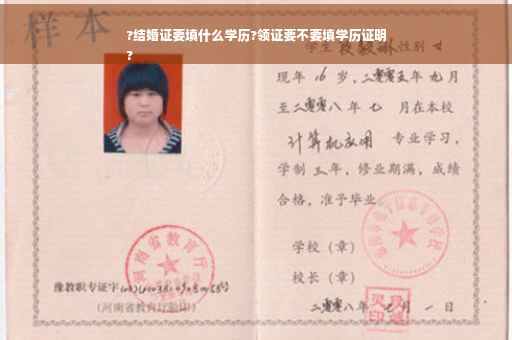 样本
?结婚证要填什么学历?领证要不要填学历证明
?
学生 性别 女
现年 16 岁,二零零五年 九月
至二零零八年 七 月在本校
计算机应用 专业学习,
学制 三年,修业期满,成绩
合格,准予毕业
学校(章)
校长(章)
二零零八年 月 一 日
河南省教育厅
豫教职专证字
(河南省教育厅验印)